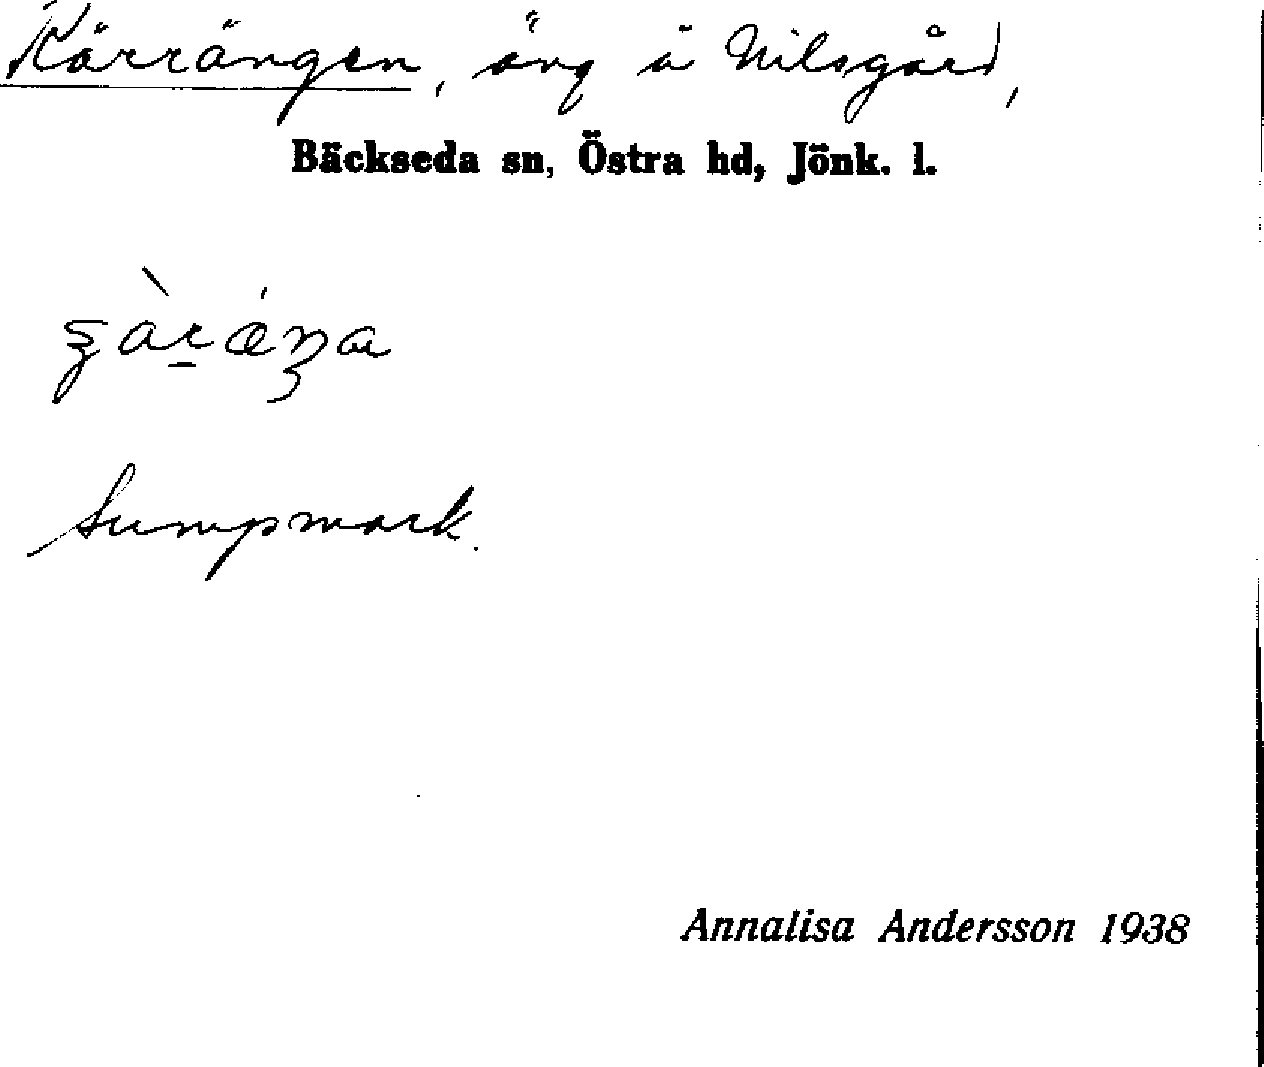 Kärrängen, äng å Nilsgård,
Bäckseda sn, Östra hd, Jönk. l.
Sumpmark.
Annalisa Andersson 1938